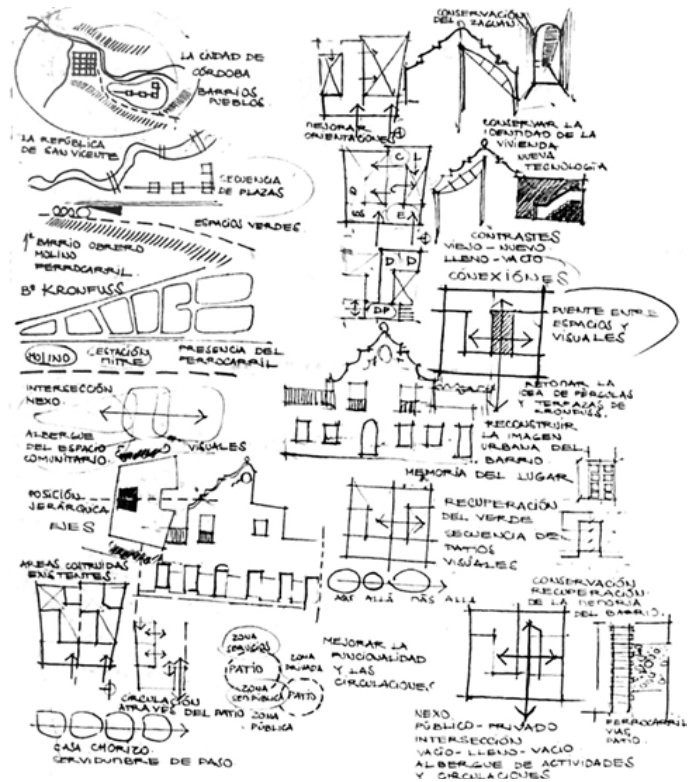 LA CIUDAD DE
CÓRDOBA
BARRIOS
PUEBLOS
LA REPÚBLICA
DE SAN VICENTE
SECUENCIA
DE PLAZAS
ESPACIOS VERDES
1er BARRIO OBRERO
MOLINO
FERROCARRIL
Bº KRONFUSS
MOLINO
ESTACIÓN
MITRE
PRESENCIA DEL
FERROCARRIL
INTERSECCIÓN
NEXO
ALBERGUE
DEL ESPACIO
COMUNITARIO
VISUALES
POSICIÓN
JERÁRQUICA
EJES
AREAS CONSTRUIDAS
EXISTENTES
CIRCULACIÓN
ATRAVES DEL PATIO
CASA CHORIZO
SERVIDUMBRE DE PASO
ZONA
SERVICIOS
PATIO
ZONA
PRIVADA
ZONA
SEMIPÚBLICA
PATIO
ZONA
PÚBLICA
MEJORAR LA
FUNCIONALIDAD
Y LAS
CIRCULACIONES
CONSERVACIÓN
DEL ZAGUAN
MEJORAR
ORIENTACIONES
CONSERVAR LA
IDENTIDAD DE LA
VIVIENDA
NUEVA
TECNOLOGÍA
C
L
E
D D
DP
CONTRASTES
VIEJO - NUEVO
LLENO - VACIO
CONEXIÓNES
PUENTE ENTRE
ESPACIOS Y
VISUALES
RETOMAR LA
IDEA DE PÉRGOLAS
Y TERRAZAS DE
KRONFUSS.
RECONSTRUIR
LA IMAGEN
URBANA DEL
BARRIO
MEMORIA DEL LUGAR
RECUPERACIÓN
DEL VERDE
SECUENCIA DE
PATIOS
VISUALES
AQUÍ ALLÁ MÁS ALLÁ
CONSERVACIÓN
RECUPERACIÓN
DE LA MEMORIA
DEL BARRIO.
NEXO
PÚBLICO - PRIVADO
INTERSECCIÓN
VACIO - LLENO - VACIO
ALBERGUE DE ACTIVIDADES
Y CIRCULACIONES
FERROCARRIL
VIAS
PATIO.